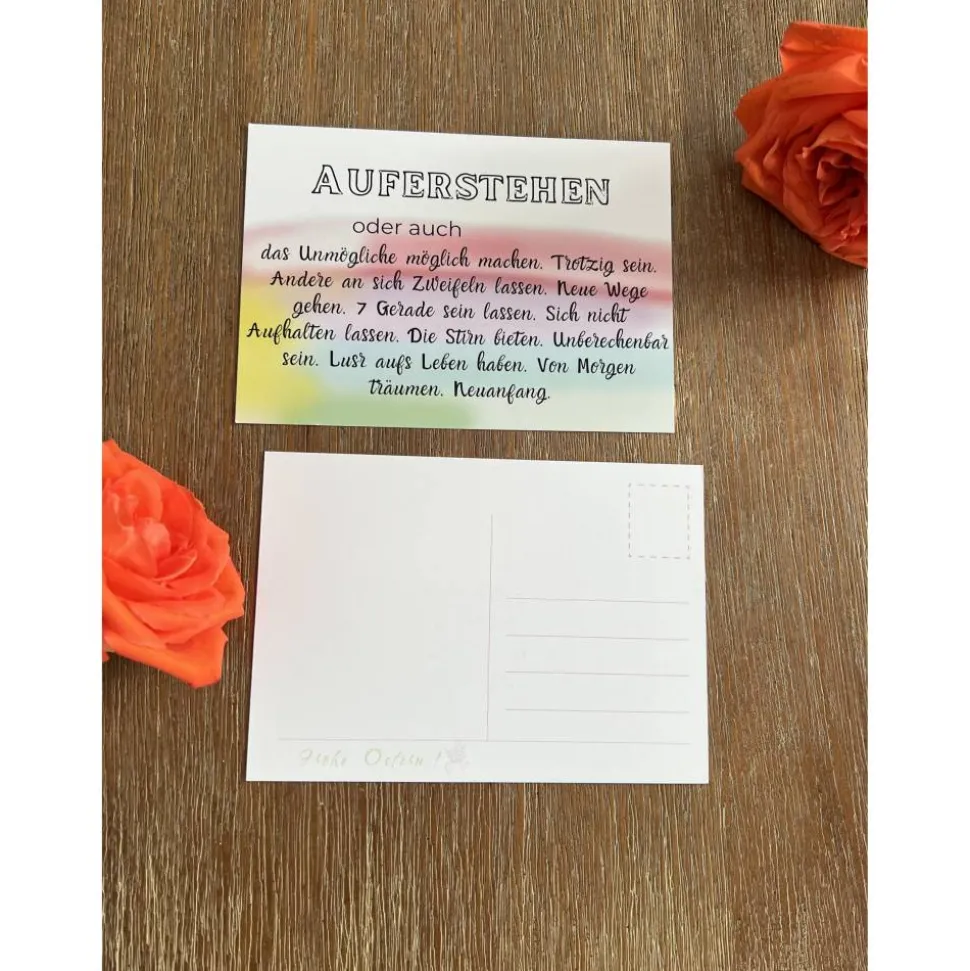 AUFERSTEHEN
oder auch
das Unmögliche möglich machen. Trotzig sein.
Andere an sich Zweifeln lassen. Neue Wege
gehen. 7 Gerade sein lassen. Sich nicht
Aufhalten lassen. Die Stirn bieten. Unberechenbar
sein. Lust aufs Leben haben. Von Morgen
träumen. Neuanfang.
Frohe Ostern!